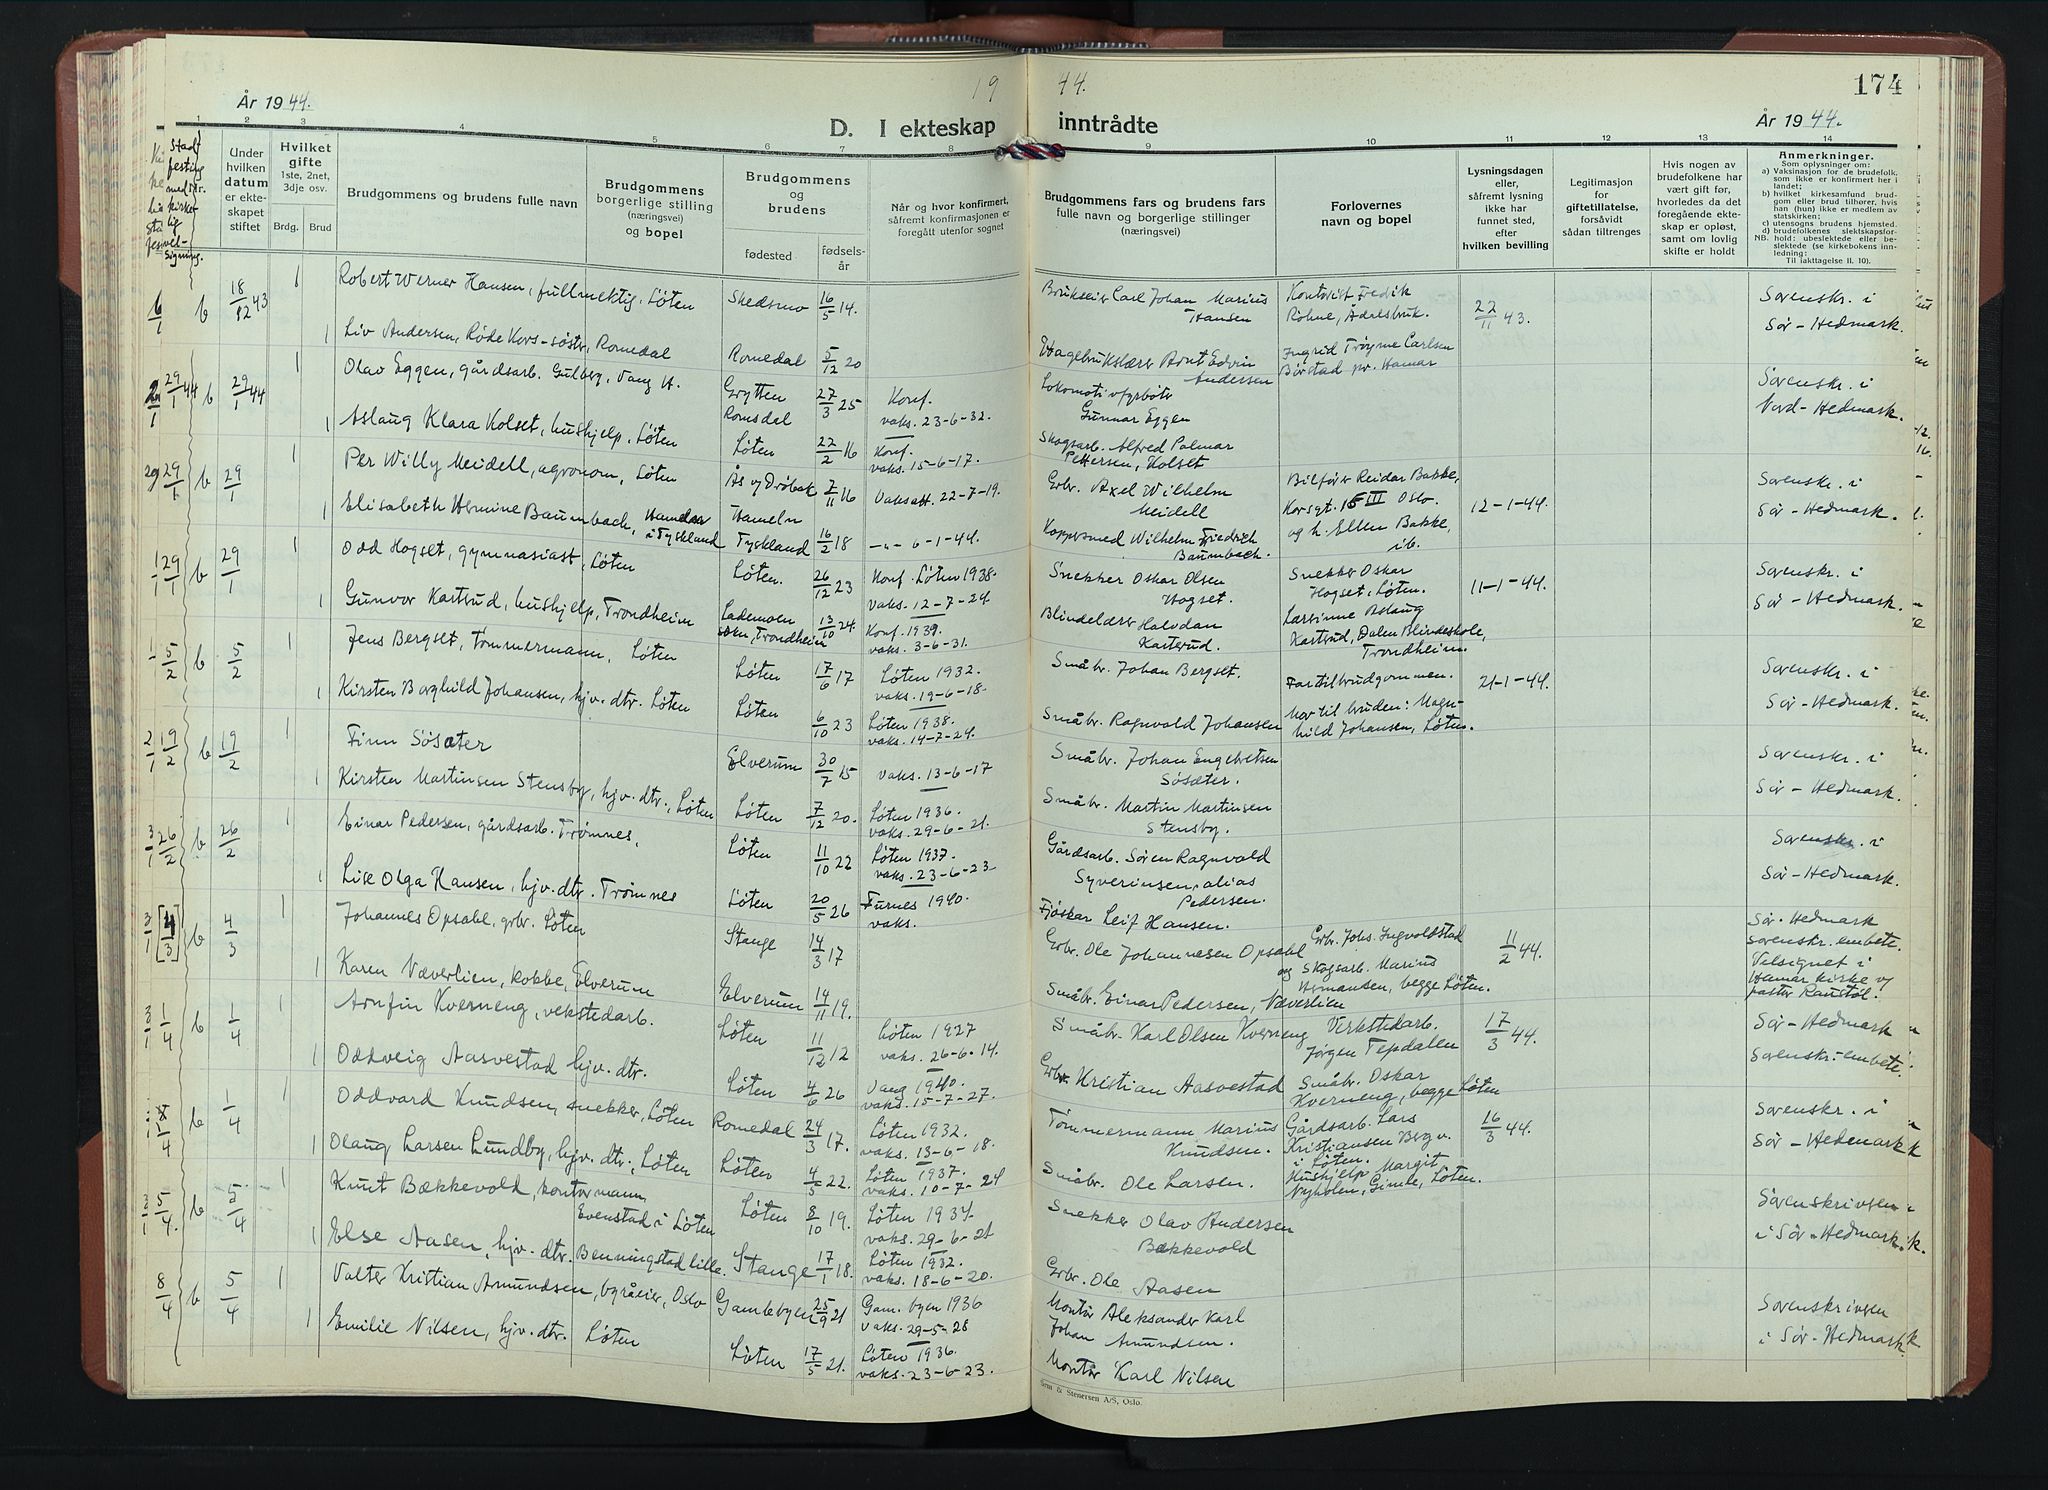 19
44.
174
År 1944.
År 1944.
D. I ekteskap inntrådte
1 2 3 4 5 6 7 8 9 10 11 12 13 14
stadfesting
med kirkelig
velsigning.
Under hvilken datum er ekteskapet stiftet
Hvilket gifte 1ste, 2net, 3dje osv.
Brdg. Brud
Brudgommens og brudens fulle navn
Brudgommens borgerlige stilling (næringsvei) og bopel
Brudgommens og brudens
fødested
fødselsår
Når og hvor konfirmert, såfremt konfirmasjonen er foregått utenfor sognet
Brudgommens fars og brudens fars fulle navn og borgerlige stillinger (næringsvei)
Forlovernes navn og bopel
Lysningsdagen eller, såfremt lysning ikke har funnet sted, efter hvilken bevilling
Legitimasjon for giftetillatelse, forsåvidt sådan tiltrenges
Hvis nogen av brudefolkene har vært gift før, hvorledes da det foregående ekteskap er opløst, samt om lovlig skifte er holdt
Anmerkninger.
Som oplysninger om:
a) Vaksinasjon for de brudefolk, som ikke er konfirmert her i landet;
b) hvilket kirkesamfund brudgom eller brud tilhører, hvis han (hun) ikke er medlem av statskirken;
c) utensogns brudens hjemsted.
d) brudefolkenes slektskapsforhold: ubeslektede eller beslektede (se kirkebokens innledning:
NB. Til iakttagelse II. 10).
6/1 b 18/12 43 1 Robert Werner Hansen, fullmektig, Løten Skedsmo 16/5 14. Brukseier Carl Johan Marius Hansen Kontorist Fredik Röhne, Ådalsbruk. 22/11 43. Sorenskr. i Sør-Hedmark.
1 Liv Andersen, Røde Kors-søster, Romedal Romedal 5/12 20 Hagebrukslærer Arnt Edvin Andersen Ingrid Trøyne Carlsen Børstad pr. Hamar
29/1 44 b 29/1 44 1 Olav Eggen, gårdsarb. Gulberg, Vang H. Grytten Romsdal 27/3 25 Konf. vaks. 23-6-32. Lokomotivfyrbøter Gunnar Eggen Sorenskr. i Nord-Hedmark.
1 Aslaug Klara Kolset, hushjelp, Løten Løten 22/2 16 Konf. vaks. 15-6-17. Skogsarb. Alfred Palmar Pettersen, Kolset
29/1 b 29/1 1 Per Willy Meidell, agronom, Løten Ås og Drøbak 7/11 16 Vaksatt. 22-7-19. Grbr. Axel Wilhelm Meidell Bilfører Reidar Bakke, Korsgt. 15 III Oslo. 12-1-44. Sorenskr. i Sør-Hedmark.
1 Elisabeth Hermine Baumbach, Hameln i Tyskland Hameln Tyskland 16/2 18 -"- 6-1-44. Koppersmed Wilhelm Friedrich Baumbach. og h. Ellen Bakke, ib.
29/1 b 29/1 1 Odd Hogset, gymnasiast, Løten Løten. 26/12 23 Konf. Løten 1938. vaks. 12-7-24. Snekker Oskar Olsen Hogset. Snekker Oskar Hogset, Løten. 11-1-44. Sorenskr. i Sør-Hedmark.
1 Gunvor Kartrud, hushjelp, Trondheim Lademoen sokn, Trondheim 13/10 24. Konf. 1939. vaks. 3-6-31. Blindelærer Halvdan Kartrud. Larsinne Aslaug Kartrud, Dalen Blindeskole, Trondheim.
5/2 b 5/2 1 Jens Bergset, Tømmermann, Løten Løten 17/6 17 Løten 1932. vaks. 19-6-18. Småbr. Johan Bergset. Far til brudgommen. 21-1-44. Sorenskr. i Sør-Hedmark.
1 Kirsten Borghild Johansen, hjv. dtr. Løten Løten 6/10 23 Løten 1938. vaks. 14-7-24. Småbr. Ragnvald Johansen Mor til bruden: Magnhild Johansen, Løten.
2/1 19/2 b 19/2 1 Finn Søsæter Elverum 30/7 15 vaks. 13-6-17 Småbr. Johan Engebretsen Søsæter. Sorenskr. i Sør-Hedmark.
1 Kirsten Martinsen Stensby, hjv. dtr., Løten Løten 7/12 20. Løten 1936. vaks. 29-6-21. Småbr. Martin Martinsen Stensby.
3/1 26/2 b 26/2 1 Einar Pedersen, gårdsarb. Trømnes, Løten 11/10 22 Løten 1937. vaks. 23-6-23 Gårdsarb. Søren Ragnvald Syverinsen, alias Pedersen. Sorenskr. i Sør-Hedmark.
1 Lise Olga Hansen, hjv. dtr. Trømnes Løten 20/5 26 Furnes 1940. vaks. Fjøskar Leif Hansen.
3/1 [4/3] b 4/3 1 Johannes Opsahl, grbr. Løten Stange 14/3 17 Grbr. Ole Johannesen Opsahl Grbr. Johs. Ingvoldstad og Skogsarb. Marius Hermansen, begge Løten. 11/2 44. Sør-Hedmark sorenskr. embete. Velsignet i Hamar kirke v/ pastor Raustøl.
1 Karen Næverlien, kokke, Elverum Elverum 14/11 19. Småbr. Einar Pedersen, Næverlien
3/1 1/4 b 1/4 1 Arnfin Kverneng, vekstedarb. Løten 11/12 12 Løten 1927 vaks. 26-6-14. Småbr. Karl Olsen Kverneng Verkstedarb. Jørgen Tepdalen 17/3 44. Sør-Hedmark Sorenskr.-embete.
1 Oddveig Aasvestad hjv. dtr. Løten 4/6 26 Vang 1940. vaks. 15-7-27. Grbr. Kristian Aasvestad Småbr. Oskar Kverneng, begge Løten
b 1/4 1 Oddvard Knudsen, snekker, Løten Romedal 24/3 17. Løten 1932. vaks. 13-6-18. Tømmermann Marius Knudsen. Gårdsarb. Lars Kristiansen Berg v. i Løten. 16/3 44. Sorenskr. i Sør-Hedmark
1 Olaug Larsen Lundby, hjv. dtr., Løten Løten 4/5 22. Løten 1937. vaks. 10-7-24 Småbr. Ole Larsen. Hushjelp Margit Nyholen, Gimle, Løten.
3/1 5/4. b 5/4 1 Knut Bækkevold, kontormann Evenstad i Løten Løten 8/10 19. Løten 1934. vaks. 29-6-21 Snekker Olav Andersen Bækkevold Sorenskriveren i Sør-Hedmark.
1 Else Aasen, hjv. dtr. Benningstad lille. Stange 17/1 18. Løten 1932. vaks. 18-6-20. Grbr. Ole Aasen
8/4 b 5/4 1 Valter Kristian Amundsen, byråeier, Oslo Gamlebyen 25/9 21 Gam. byen 1936 vaks. 29-5-28 Montør Aleksander Karl Johan Amundsen. Sorenskriveren i Sør-Hedmark.
1 Emilie Nilsen, hjv. dtr. Løten Løten 17/5 21. Løten 1936. vaks. 23-6-23. Montør Karl Nilsen
Grøn & Stenersen A/S, Oslo.